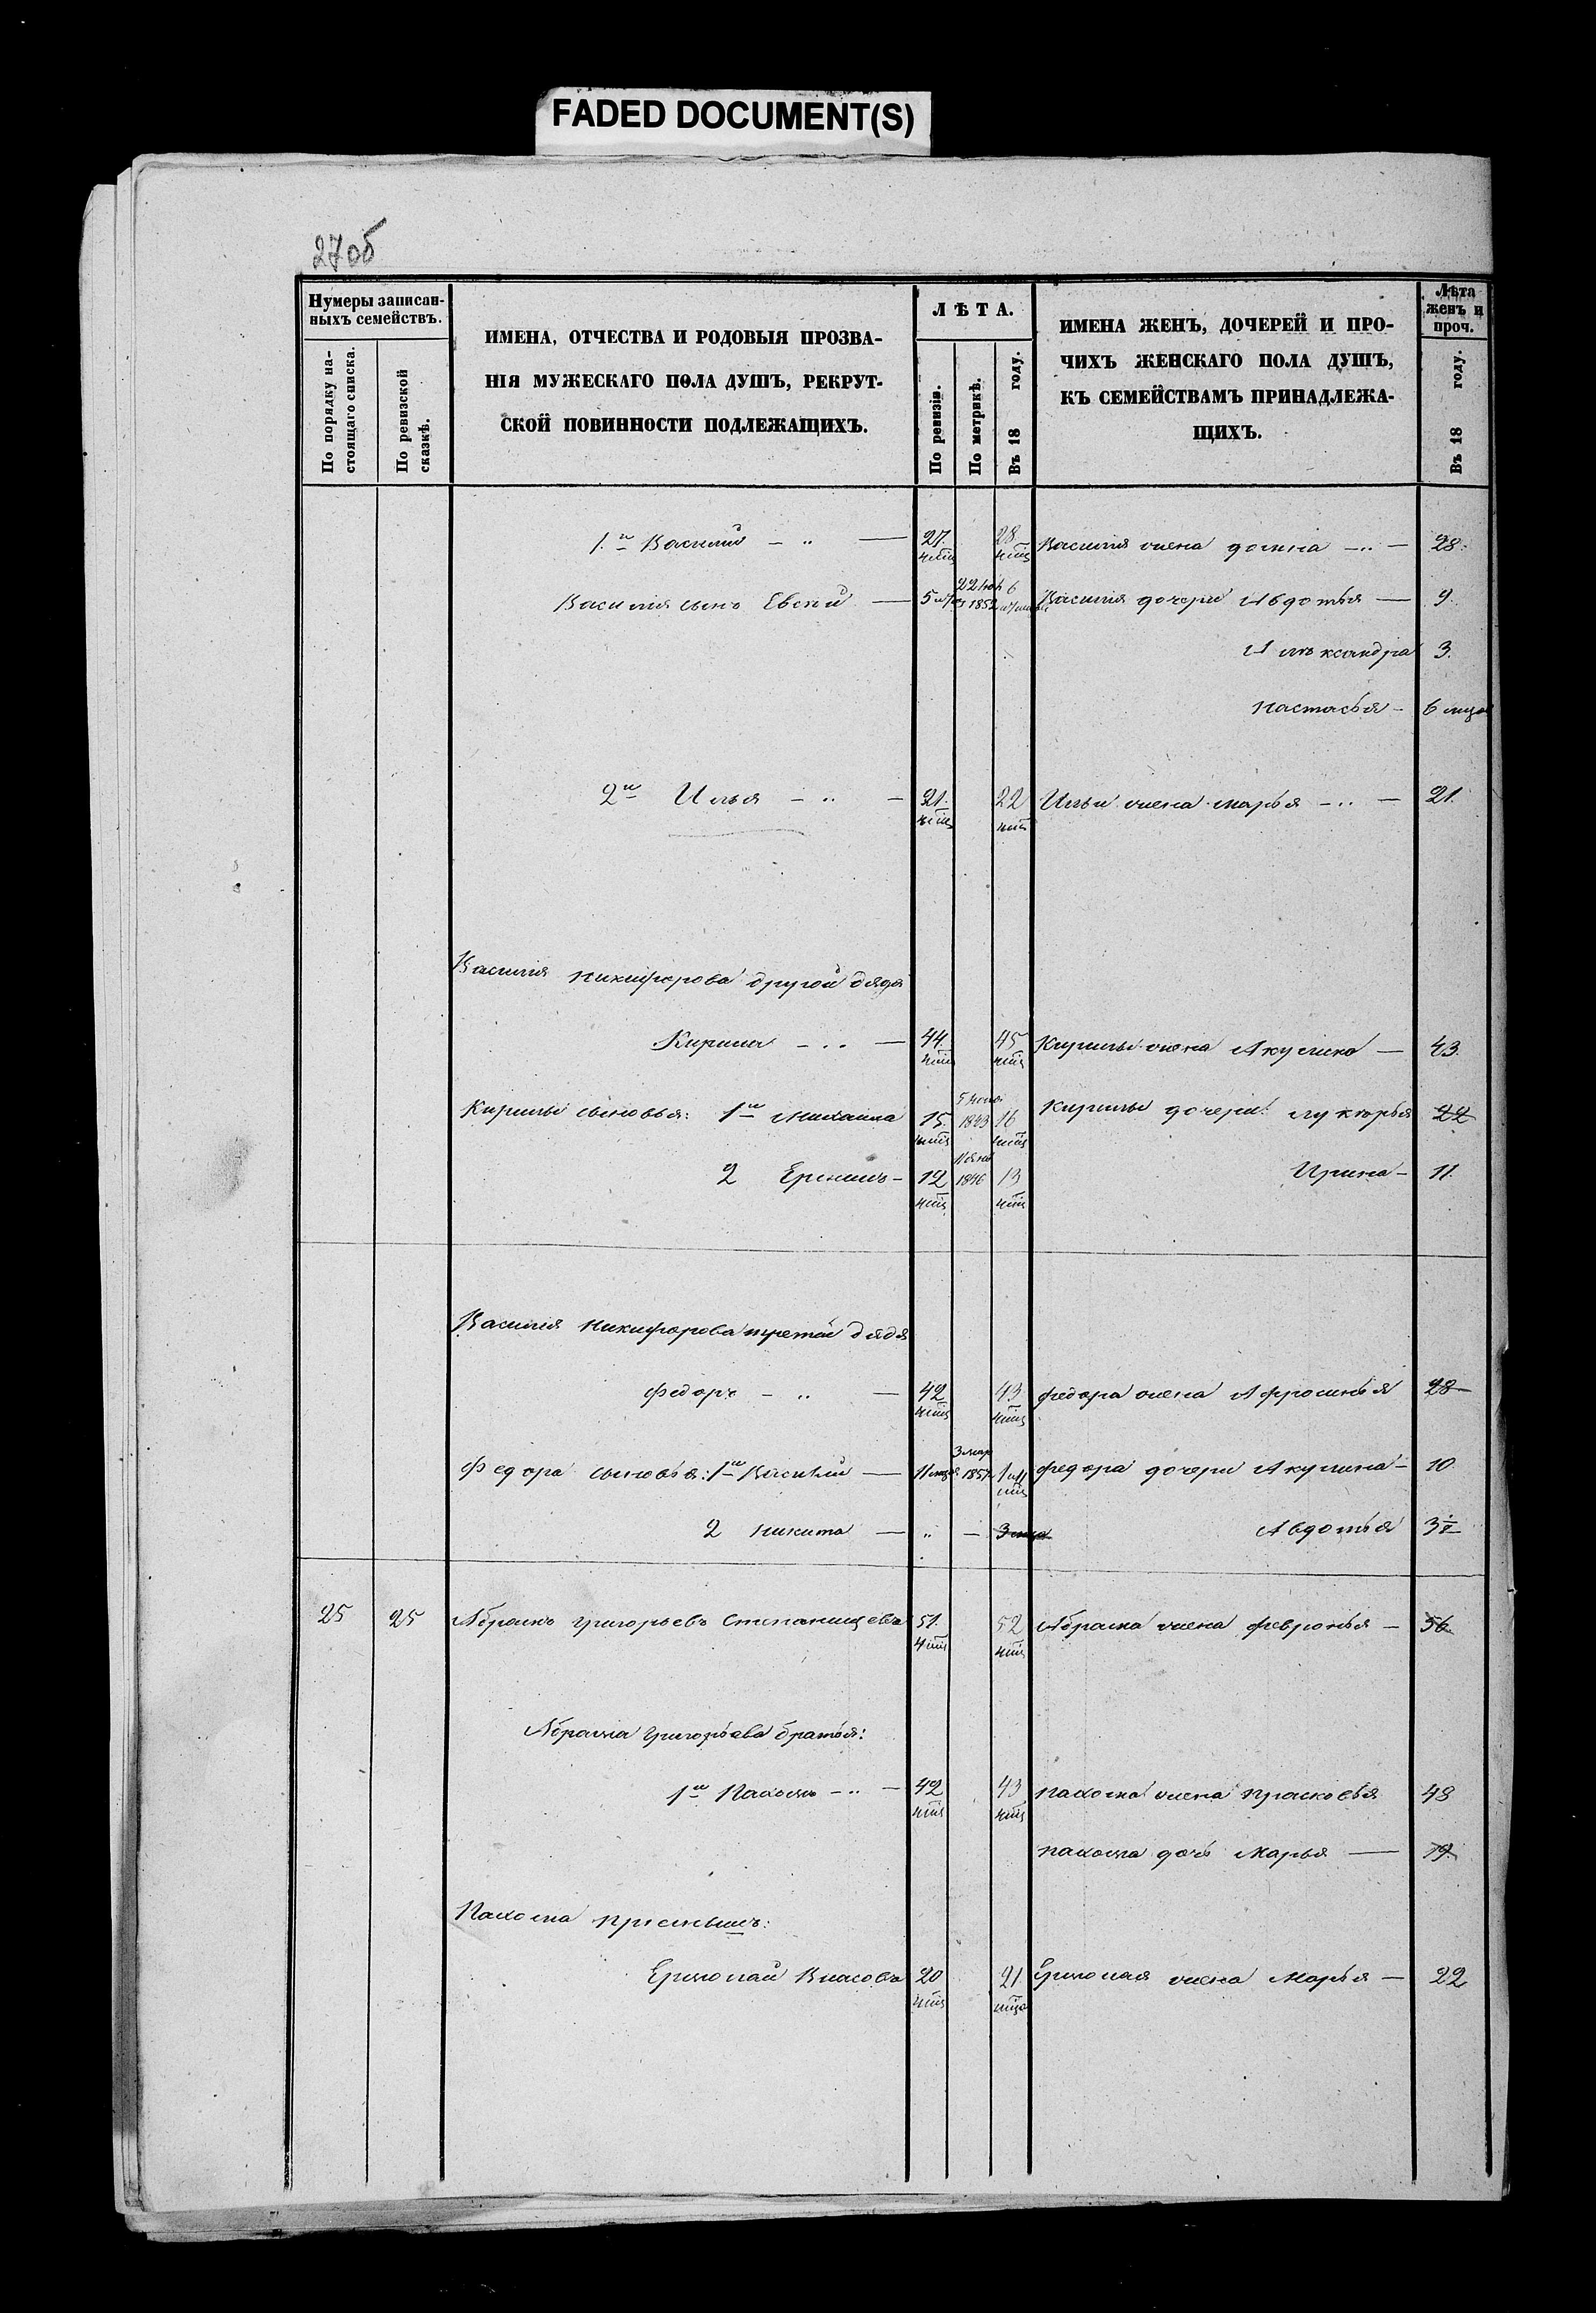 FADED DOCUMENT(S)
27об
Нумеры записан-
ныхъ семействъ.
По порядку на-
стоящаго списка.
По ревизской
сказкѣ.
ИМЕНА, ОТЧЕСТВА И РОДОВЫЯ ПРОЗВА-
НІЯ МУЖЕСКАГО ПОЛА ДУШЪ, РЕКРУТ-
СКОЙ ПОВИННОСТИ ПОДЛЕЖАЩИХЪ.
ЛѢТА.
По ревизіи.
По метрикѣ.
Въ 18 году.
ИМЕНА ЖЕНЪ, ДОЧЕРЕЙ И ПРО-
ЧИХЪ ЖЕНСКАГО ПОЛА ДУШЪ,
КЪ СЕМЕЙСТВАМЪ ПРИНАДЛЕЖА-
ЩИХЪ.
Лѣта
женъ и
проч.
Въ 18 году.
1й Василий — „ — 27. 28 Василия жена Домна — „ — 28.
Василия сынъ Евсей — 5 6 Василия дочери Авдотья — 9.
Александра 3.
Настасья — 6 мца
2й Илья — „ — 21. 22 Ильи жена Марья — „ — 21.
Василия Никифорова другой дядя
Кирила — „ — 44. 45 Кирилы жена Акулина — 43.
Кирилы сыновья: 1й Михаила 15. 1843 16 Кирилы дочери: Лукерья 22
2 Еремей — 12 1846 13 Ирина — 11.
Василия Никифорова третей дядя
Федоръ — „ — 42 43 Федора жена Афросинья 28
Федора сыновья: 1й Василий — 11 мца 3 мар 1857 Федора дочери Акулина — 10.
2 Никита — „ — 3 мца Авдотья 3
25 25 Абрамъ Григорьевъ 51. 52 Абрама жена Февронья — 56
Абрама Григорьева братья:
1й Пахомъ — „ — 42 43 Пахома жена Прасковья 48
Пахома дочь Марья — 19.
Пахома приемышъ:
Ермолай Власовъ 20 21 Ермолая жена Марья — 22